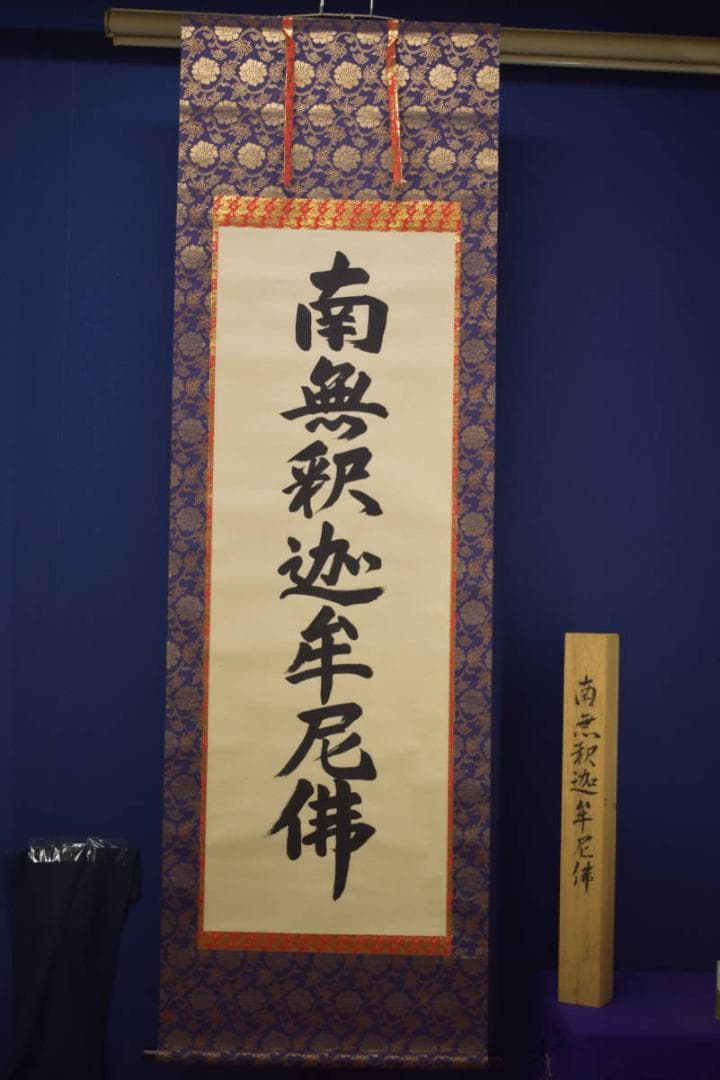 南無釈迦牟尼佛
南無釈迦牟尼佛